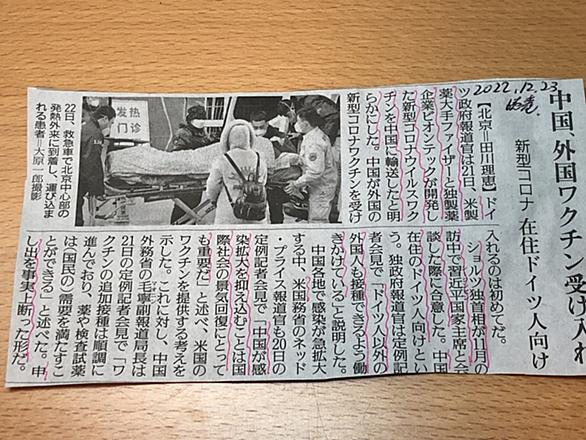 2022.12.23
中国、外国ワクチン受け入れ
新型コロナ 在住ドイツ人向け
【北京=田川理恵】ドイ
ツ政府報道官は21日、米製
薬大手ファイザーと独製薬
企業ビオンテックが開発し
た新型コロナウイルスワク
チンを中国に輸送したと明
らかにした。中国が外国の
新型コロナワクチンを受け
入れるのは初めてだ。
ショルツ独首相が11月の
訪中で習近平国家主席と会
談した際に合意した。中国
在住のドイツ人向けとい
う。独政府報道官は定例記
者会見で「ドイツ人以外の
外国人も接種できるよう働
きかけている」と説明した。
中国各地で感染が急拡大
する中、米国務省のネッド
・プライス報道官も20日の
定例記者会見で「中国が感
染拡大を抑え込むことは国
際社会の景気回復にとって
も重要だ」と述べ、米国の
ワクチンを提供する考えを
示した。これに対し、中国
外務省の毛寧副報道局長は
21日の定例記者会見で「ワ
クチンの追加接種は順調に
進んでおり、薬や検査試薬
は(国民の)需要を満たすこ
とができる」と述べた。申
し出を事実上断った形だ。
发热
门诊
22日、救急車で北京中心部の
発熱外来に到着し、運び込ま
れる患者=大原一郎撮影